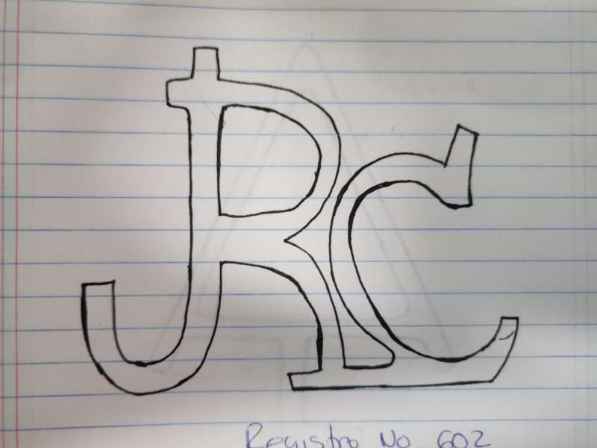 JRC
Registro No 602